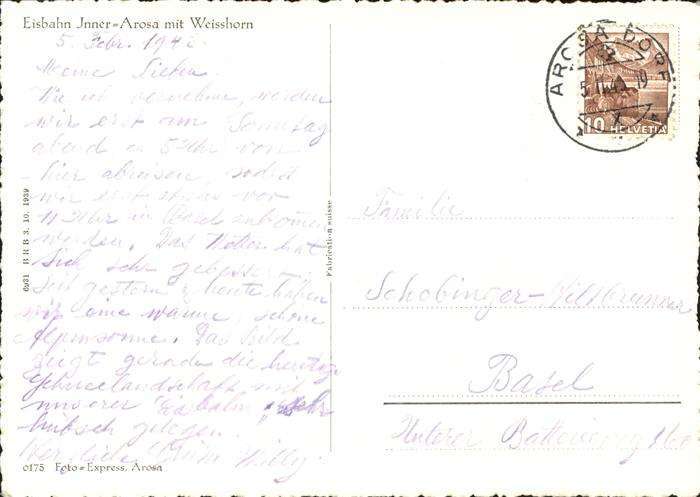 Eisbahn Jnner=Arosa mit Weisshorn
5. Febr. 1942
Meine Lieben.
Wie ich vernehme, werden
wir erst am Sonntag
abend ca 5 Uhr von
hier abreisen, sodass
wir erst etwas vor
11 Uhr in Basel ankommen
werden. Das Wetter hat
sich sehr gebessert.
Seit gestern & heute haben
wir eine warme, schöne
Alpensonne. Das Bild
zeigt gerade die herrliche
Schneelandschaft und
unserer Eisbahn sehr
hübsch gelegen.
Herzliche Grüsse Willy
0175 Foto=Express, Arosa
6931 B R B 3. 10. 1939
Fabrication suisse
AROSA DORF
10 HELVETIA
Familie
Schobinger-Hiltbrunner
Basel
Unterer Batterieweg 160